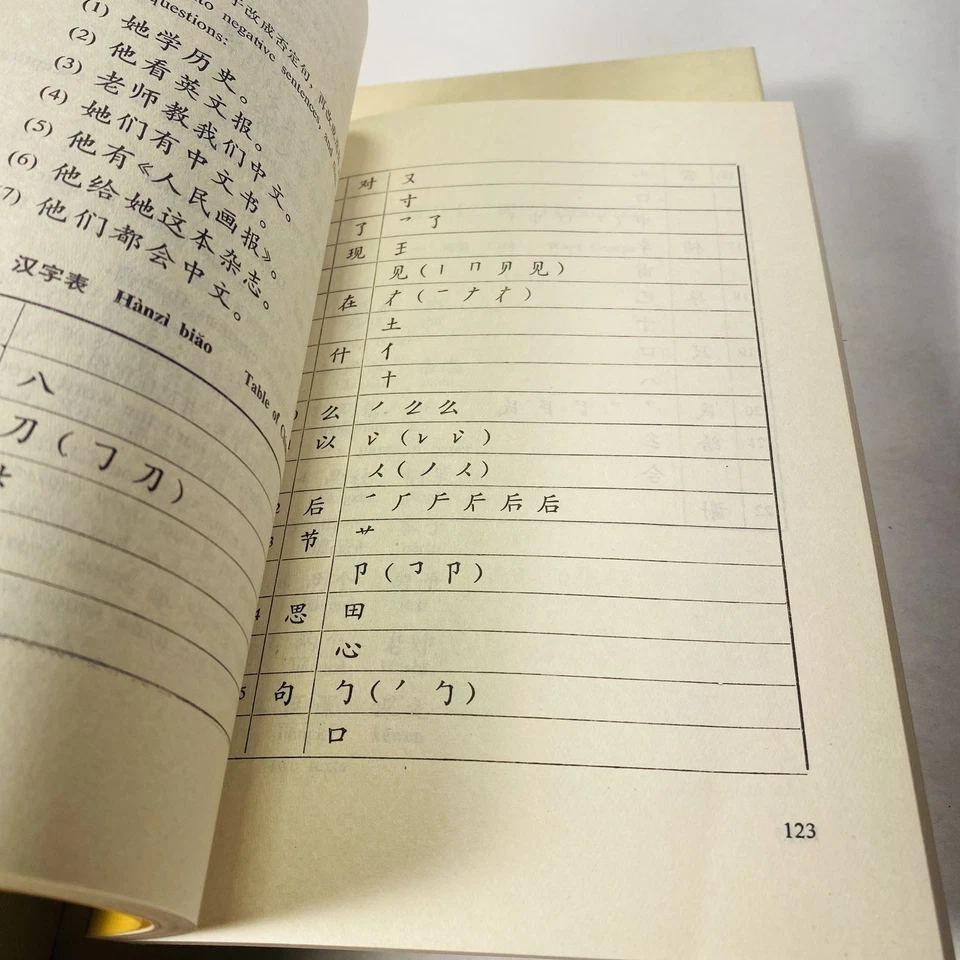 子改成否定句，再改成
into negative sentences, and
questions:
(1) 她学历史。
(2) 他看英文报。
(3) 老师教我们中文。
(4) 她们有中文书。
(5) 他有《人民画报》。
(6) 他给她这本杂志。
7) 他们都会中文。
汉字表 Hànzì biǎo Table of
八
刀 (㇆ 刀)
对 又
寸
了 乛 了
现 王
见 (丨 冂 贝 见)
在 (一 ナ)
土
什 亻
十
么 丿 么
以
(丿)
2 后 一 厂 后 后
3 节 艹
卩 (㇆ 卩)
4 思 田
心
5 句 勹 (丿 勹)
口
123